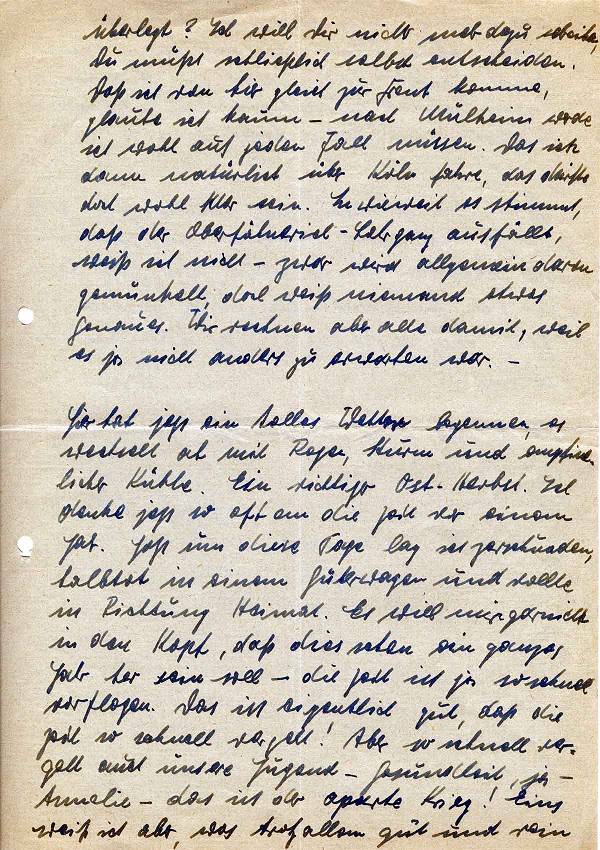 überlegt? Ich will Dir nicht mehr dazu schreiben,
Du mußt schließlich selbst entscheiden.
Daß ich von hier gleich zur Front komme,
glaube ich kaum – nach Mülheim werde
ich wohl auf jeden Fall müssen. Das ich
dann natürlich über Köln fahre, das dürfte
doch wohl klar sein. In wieweit es stimmt,
daß der Oberfähnrich-Lehrgang ausfällt,
weiß ich nicht – zwar wird allgemein davon
gemunkelt, doch weiß niemand etwas
Genaues. Wir rechnen aber alle damit, weil
es ja nicht anders zu erwarten war. –
Hier hat jetzt ein tolles Wetter begonnen, es
wechselt ab mit Regen, Sturm und empfind-
licher Kühle. Ein richtiger Ost-Herbst. Ich
denke jetzt so oft an die Zeit vor einem
Jahr. Jetzt um diese Tage lag ich zerschunden,
halbtot in einem Güterwagen und rollte
in Richtung Heimat. Es will mir garnicht
in den Kopf, daß dies schon ein ganzes
Jahr her sein soll – die Zeit ist ja so schnell
verflogen. Das ist eigentlich gut, daß die
Zeit so schnell vergeht! Aber so schnell ver-
geht auch unsere Jugend – Gesundheit, ja –
Annelie – das ist der Krieg! Eins
weiß ich aber, was trotz allem gut und rein